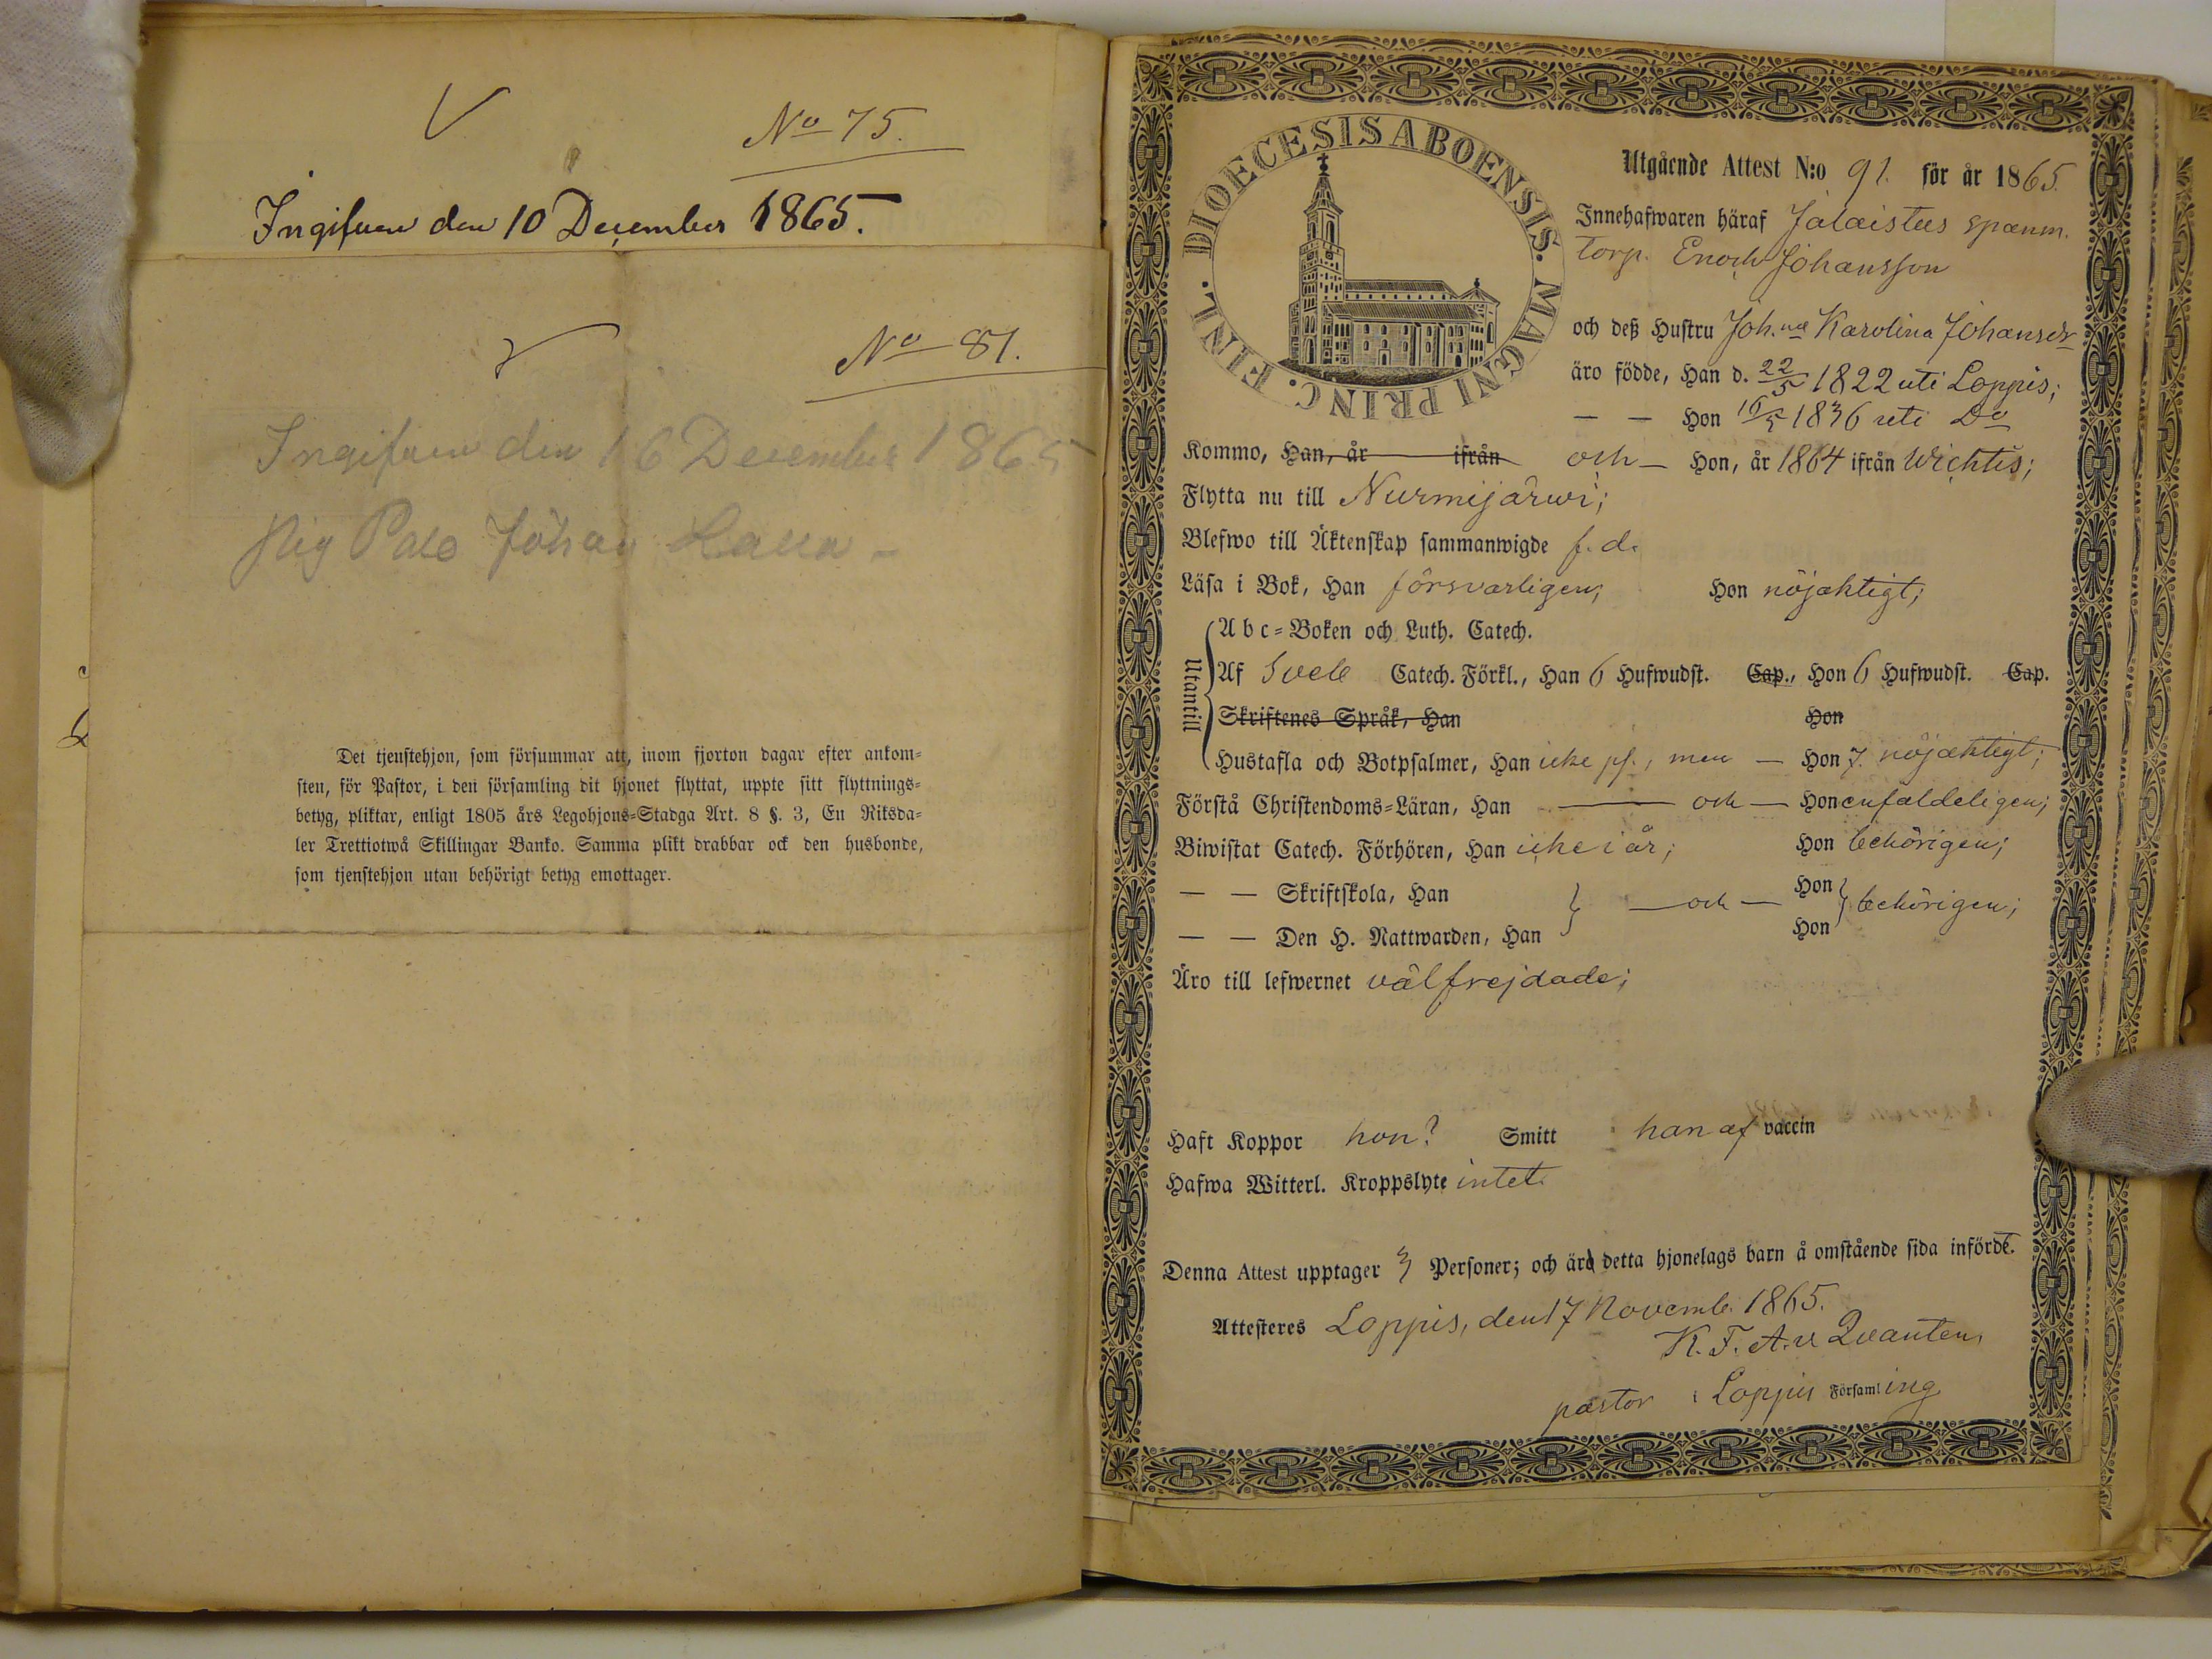 No 75.
Ingifven den 10 December 1865.
No 81.
Ingifven den 16 December 1865
Pig Palo Johan
Det tjenstehjon, som försummar att, inom fjorton dagar efter ankom-
sten, för Pastor, i den församling dit hjonet flyttat, uppte sitt flyttnings-
betyg, pliktar, enligt 1805 års Legohjons-Stadga Art. 8 §. 3, En Riksda-
ler Trettiotwå Skillingar Banko. Samma plikt drabbar ock den husbonde,
som tjenstehjon utan behörigt betyg emottager.
DIOECESIS ABOENSIS. MAGNI PRINC. FINL.
Utgående Attest N:o 91. för år 1865.
Innehafwaren häraf Jalaistus spanm.
torp. Enoch Johansson
och deß Hustru Joh.na Karolina Johansdr
äro födde, Han d. 22/5 1822 uti Loppis;
— — Hon 16/5 1836 uti Do
Kommo, Han, år ifrån och — Hon, år 1864 ifrån Wichtis;
Flytta nu till Nurmijärwi;
Blefwo till Äktenskap sammanwigde f. d.
Läsa i Bok, Han försvarligen; Hon nöjaktigt;
Utantill
Abc-Boken och Luth. Catech.
Af Sveb Catech. Förkl., Han 6 Hufwudst. Cap., Hon 6 Hufwudst. Cap.
Skriftenes Språk, Han Hon
Hustafla och Botpsalmer, Han icke ps., men — Hon 7. nöjaktigt;
Förstå Christendoms-Läran, Han — och — Hon enfaldeligen;
Biwistat Catech. Förhören, Han icke i år; Hon behörigen;
— — Skriftskola, Han Hon
— och — behörigen;
— — Den H. Nattwarden, Han Hon
Äro till lefwernet välfrejdade;
Haft Koppor hon? Smitt han af vaccin
Hafwa Witterl. Kroppslyte intet.
Denna Attest upptager 3 Personer; och äro detta hjonelags barn å omstående sida införde.
Attesteres Loppis, den 17 Novemb. 1865.
K. F. A. v. Qvanten,
pastor i Loppis Församling